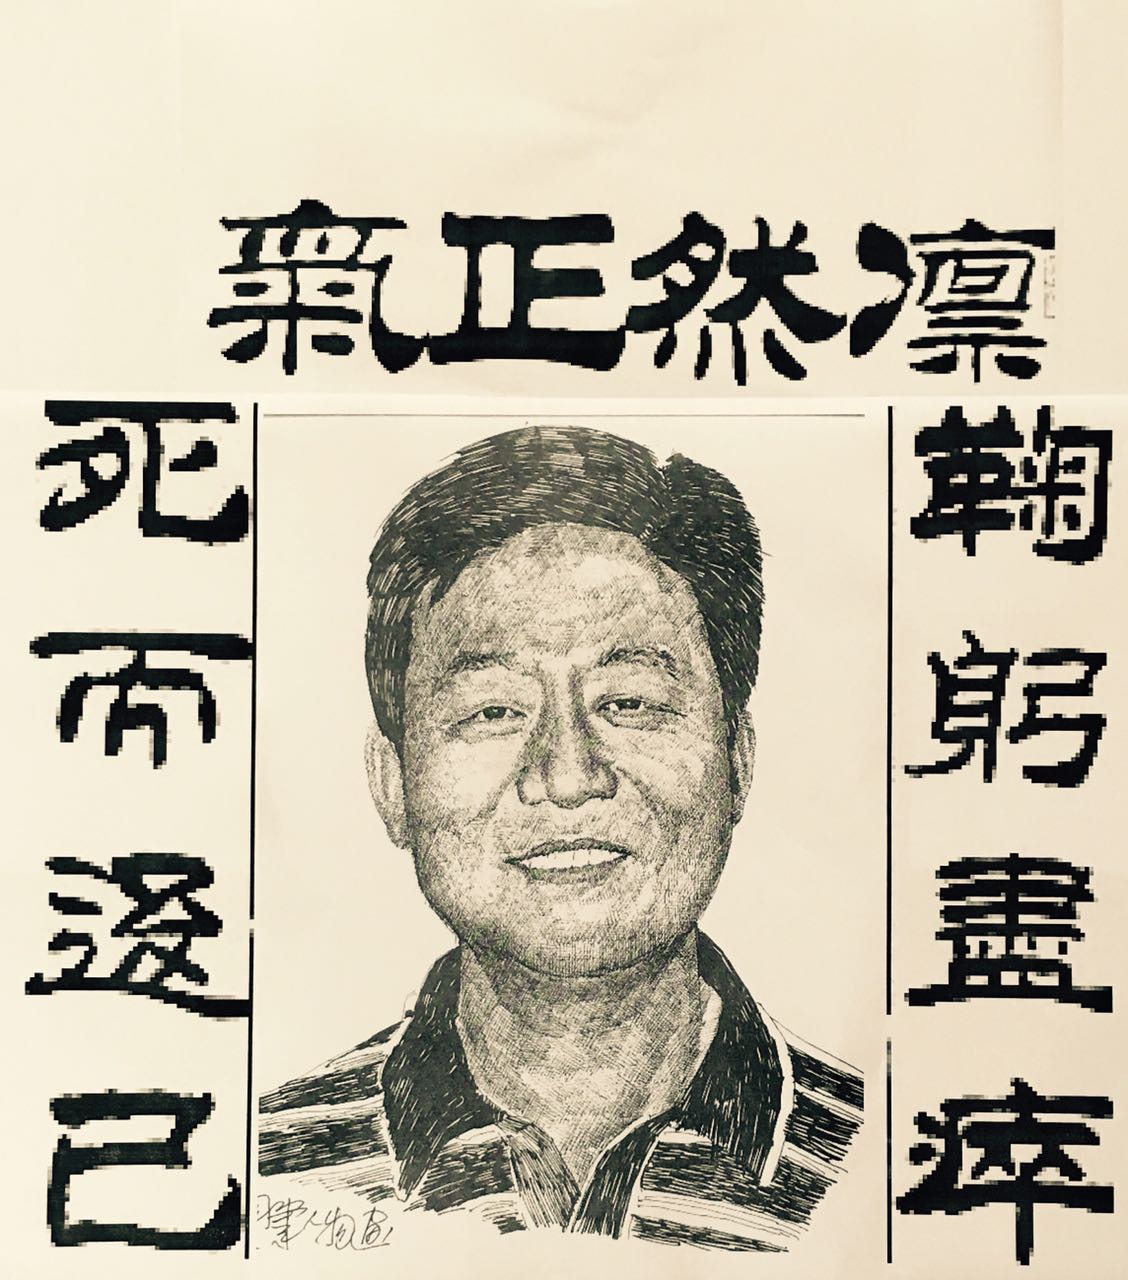 凛然正氣
鞠躬盡瘁
死而後已
人物画